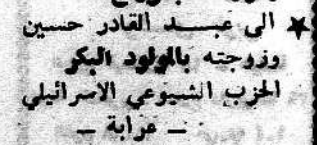 ★ الى عبد القادر حسين
وزوجته بالمولود البكر
الحزب الشيوعي الاسرائيلي
ـ عرابة ـ